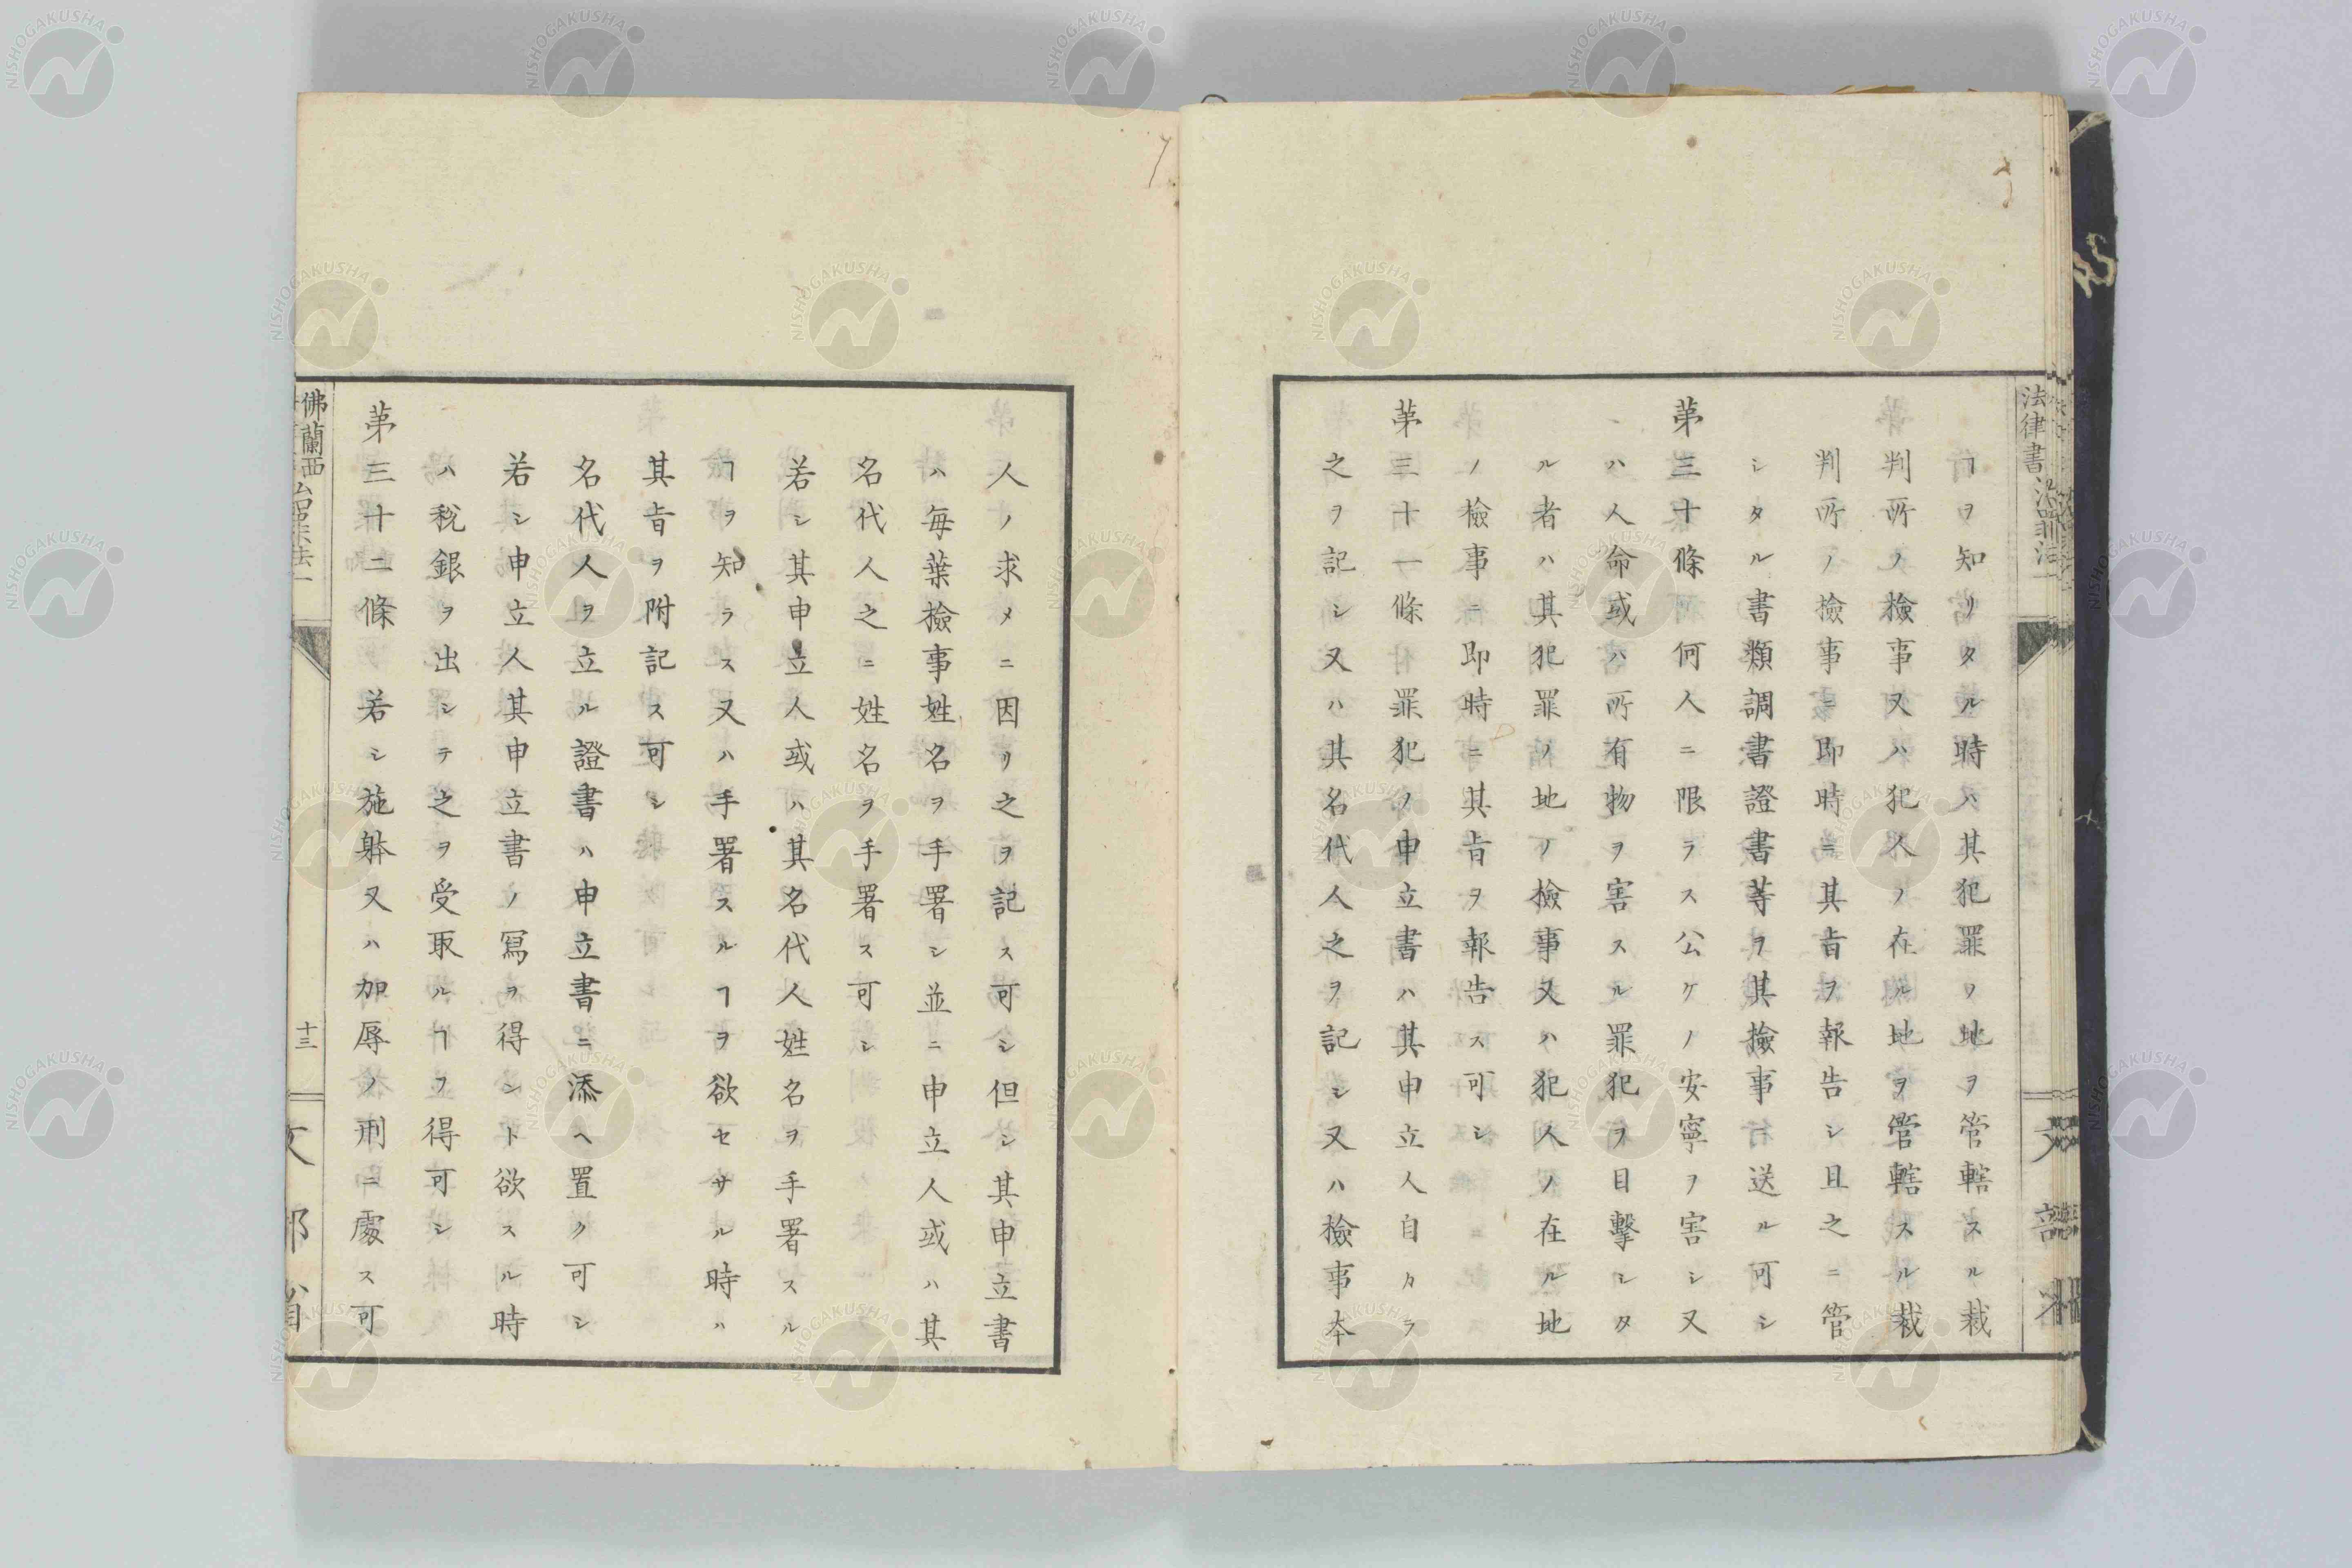 法律書 治罪法
ヿヲ知リタル時ハ其犯罪ノ地ヲ管轄スル裁
判所ノ檢事又ハ犯人ノ在ル地ヲ管轄スル裁
判所ノ檢事ニ即時ニ其旨ヲ報告シ且之ニ管
シタル書類調書證書等ヲ其檢事ニ送ル可シ
苐三十條何人ニ限ラス公ケノ安寧ヲ害シ又
ハ人命或ハ所有物ヲ害スル罪犯ヲ目擊シタ
ル者ハ其犯罪ノ地ノ檢事又ハ犯人ノ在ル地
ノ檢事ニ即時ニ其旨ヲ報告ス可シ
苐三十一條罪犯ノ申立書ハ其申立人自カラ
之ヲ記シ又ハ其名代人之ヲ記シ又ハ檢事本
人ノ求メニ因リ之ヲ記ス可シ但シ其申立書
ハ毎葉檢事姓名ヲ手署シ並ニ申立人或ハ其
名代人之ニ姓名ヲ手署ス可シ
若シ其申立人或ハ其名代人姓名ヲ手署スル
ヿヲ知ラス又ハ手署スルヿヲ欲セサル時ハ
其旨ヲ附記ス可シ
名代人ヲ立ル證書ハ申立書ニ添ヘ置ク可シ
若シ申立人其申立書ノ冩ヲ得ント欲スル時
ハ稅銀ヲ出シテ之ヲ受取ルヿヲ得可シ
苐三十二條若シ施躰又ハ加辱ノ刑ニ處ス可
佛蘭西治罪法一
十三
文部省
NISHOGAKUSHA